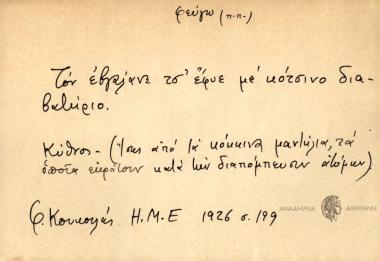 φεύγω (π.π.)
Τὸν ἐβγάλανε τσ' ἔφυε μὲ κότσινο δια-
βατήριο.
Κύθνος - (Ἴσως ἀπὸ τὰ κόκκινα μαντήλια, τὰ
ὁποῖα ἐκράτουν κατὰ τὴν διαπόμπευσιν ἀτόμων).
Φ. Κουκουλές Η.Μ.Ε 1926 σ. 199
ΑΚΑΔΗΜΙΑ ΑΘΗΝΩΝ